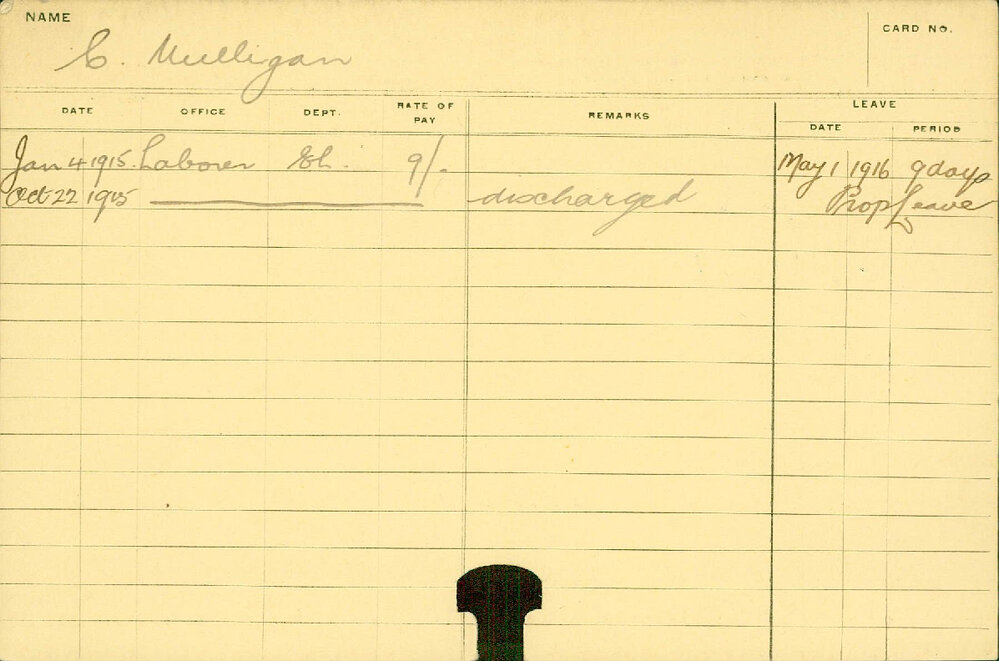 NAME
C. Mulligan
CARD NO.
DATE OFFICE DEPT. RATE OF PAY REMARKS LEAVE DATE PERIOD
Jan 4 1915. Laborer 9/- May 1 1916 9 days
Oct 22 1915 discharged Prop Leave